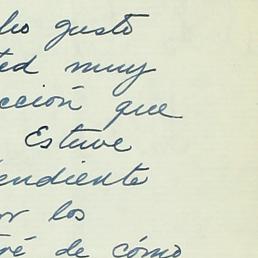 cho gusto
ted muy
cción que
Estuve
endiente
or los
tré de cómo